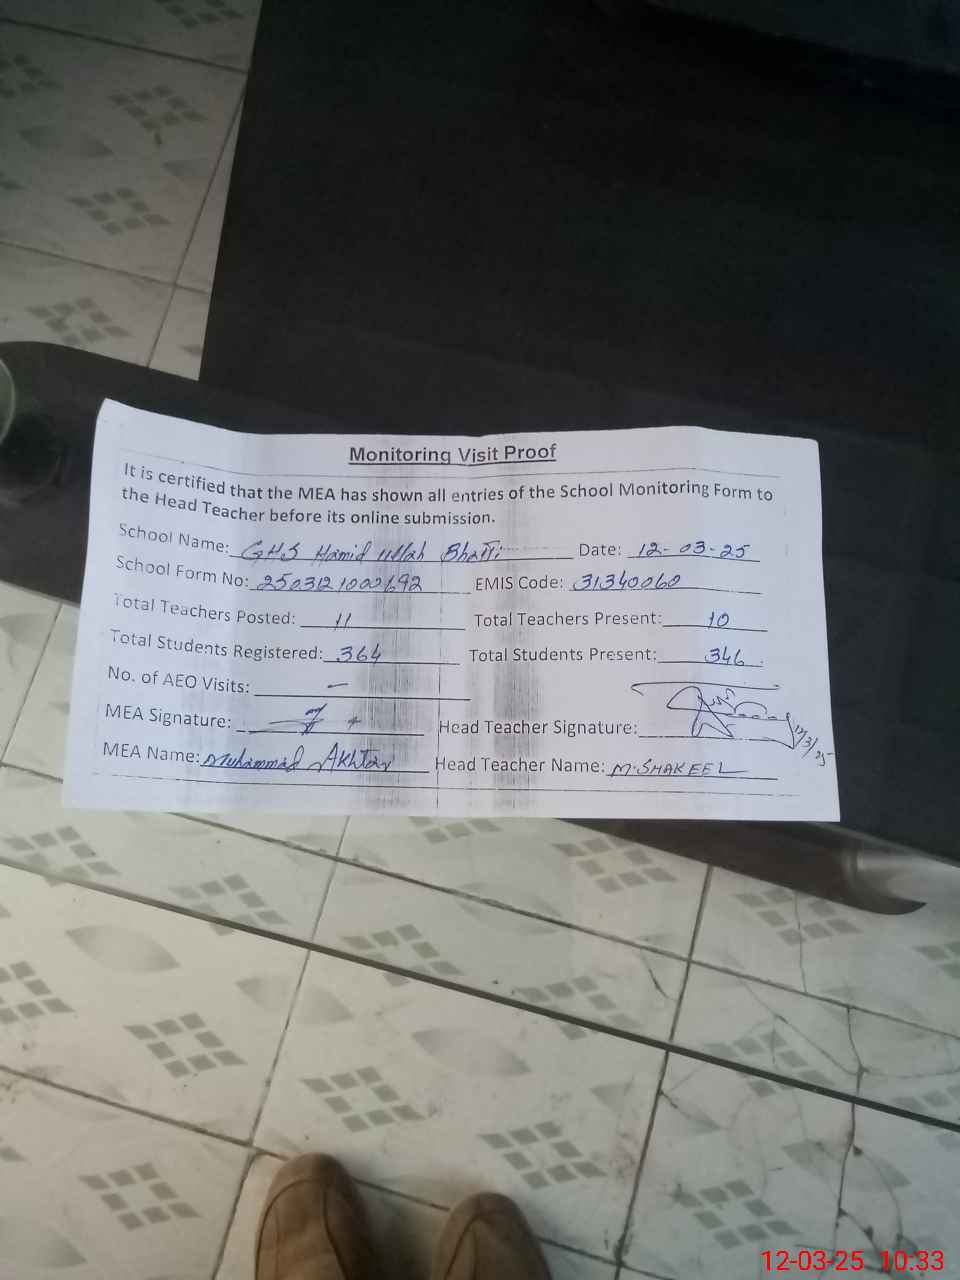 Monitoring Visit Proof
It is certified that the MEA has shown all entries of the School Monitoring Form to
the Head Teacher before its online submission.
School Name: GHS Hamid ullah Bhatti Date: 12-03-25
School Form No: 2503121000692 EMIS Code: 31340060
Total Teachers Posted: 11 Total Teachers Present: 10
Total Students Registered: 364 Total Students Present: 346
No. of AEO Visits: —
MEA Signature: Head Teacher Signature: 12/3/25
MEA Name: Muhammad Akhtar Head Teacher Name: M. SHAKEEL
12-03-25 10:33